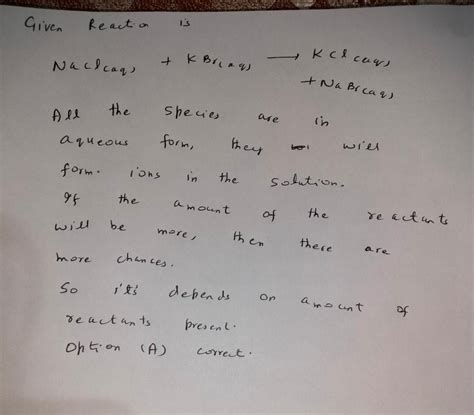 Given Reaction is
NaCl(aq) + KBr(aq) ⟶ KCl(aq)
+ NaBr(aq)
All the species are in
aqueous form, they will
form. ions in the solution.
If the amount of the reactants
will be more, then there are
more chances.
So it's depends on amount of
reactants present.
Option (A) correct.